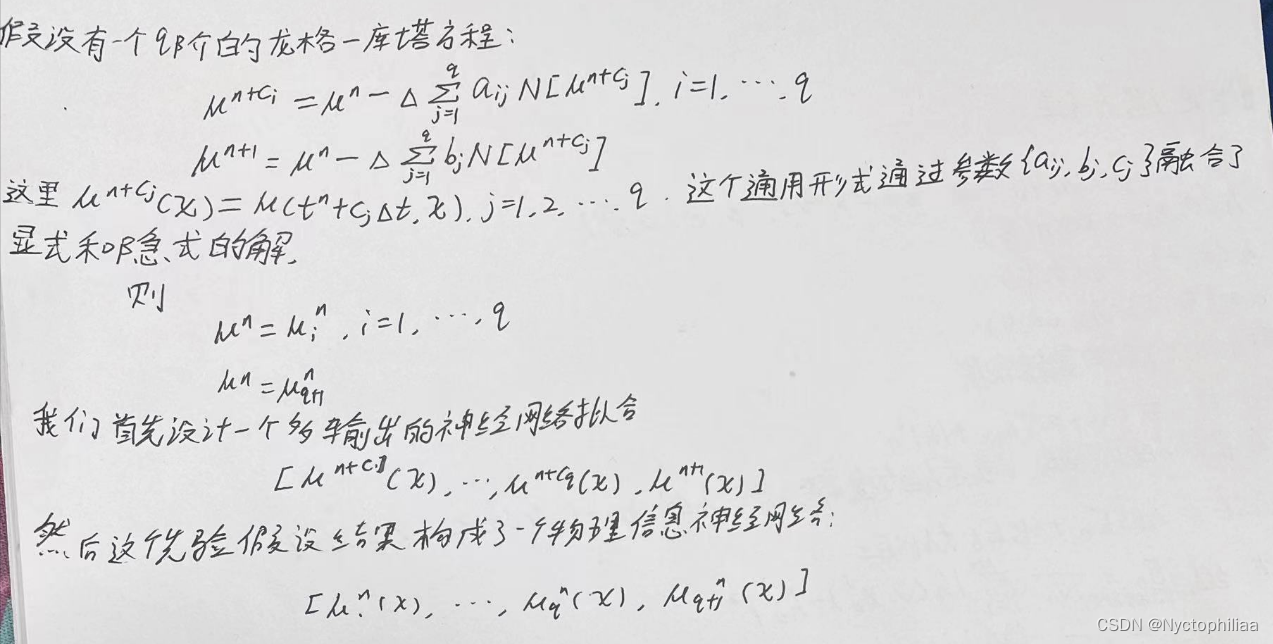 假设有一个q阶的龙格-库塔方程:
μⁿ⁺ᶜⁱ = μⁿ - Δ Σ_{j=1}^{q} a_{ij} N[μ^{n+c_j}], i=1, ⋯, q
μⁿ⁺¹ = μⁿ - Δ Σ_{j=1}^{q} b_j N[μ^{n+c_j}]
这里 μ^{n+c_j}(x) = μ(tⁿ+c_jΔt, x), j=1,2, ⋯, q. 这个通用形式通过参数{a_{ij}, b_j, c_j}融合了
显式和隐式的解,
则
μⁿ = μ_iⁿ, i=1, ⋯, q
μⁿ = μ_{q+1}ⁿ
我们首先设计一个多输出的神经网络拟合
[μ^{n+c_1}(x), ⋯, μ^{n+c_q}(x), μ^{n+1}(x)]
然后这个先验假设结果构成了一个物理信息神经网络:
[μ_1ⁿ(x), ⋯, μ_qⁿ(x), μ_{q+1}ⁿ(x)]
CSDN @Nyctophiliaa